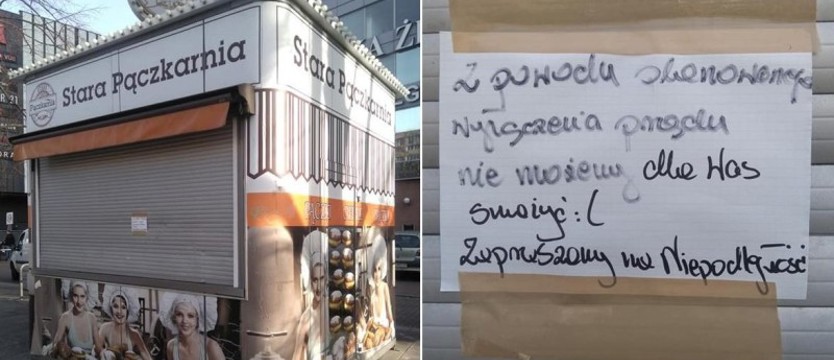 Stara Pączkarnia
Stara Pączkarnia
Z powodu planowanego
wyłączenia prądu
nie możemy dla Was
smażyć :(
Zapraszamy na Niepodległość